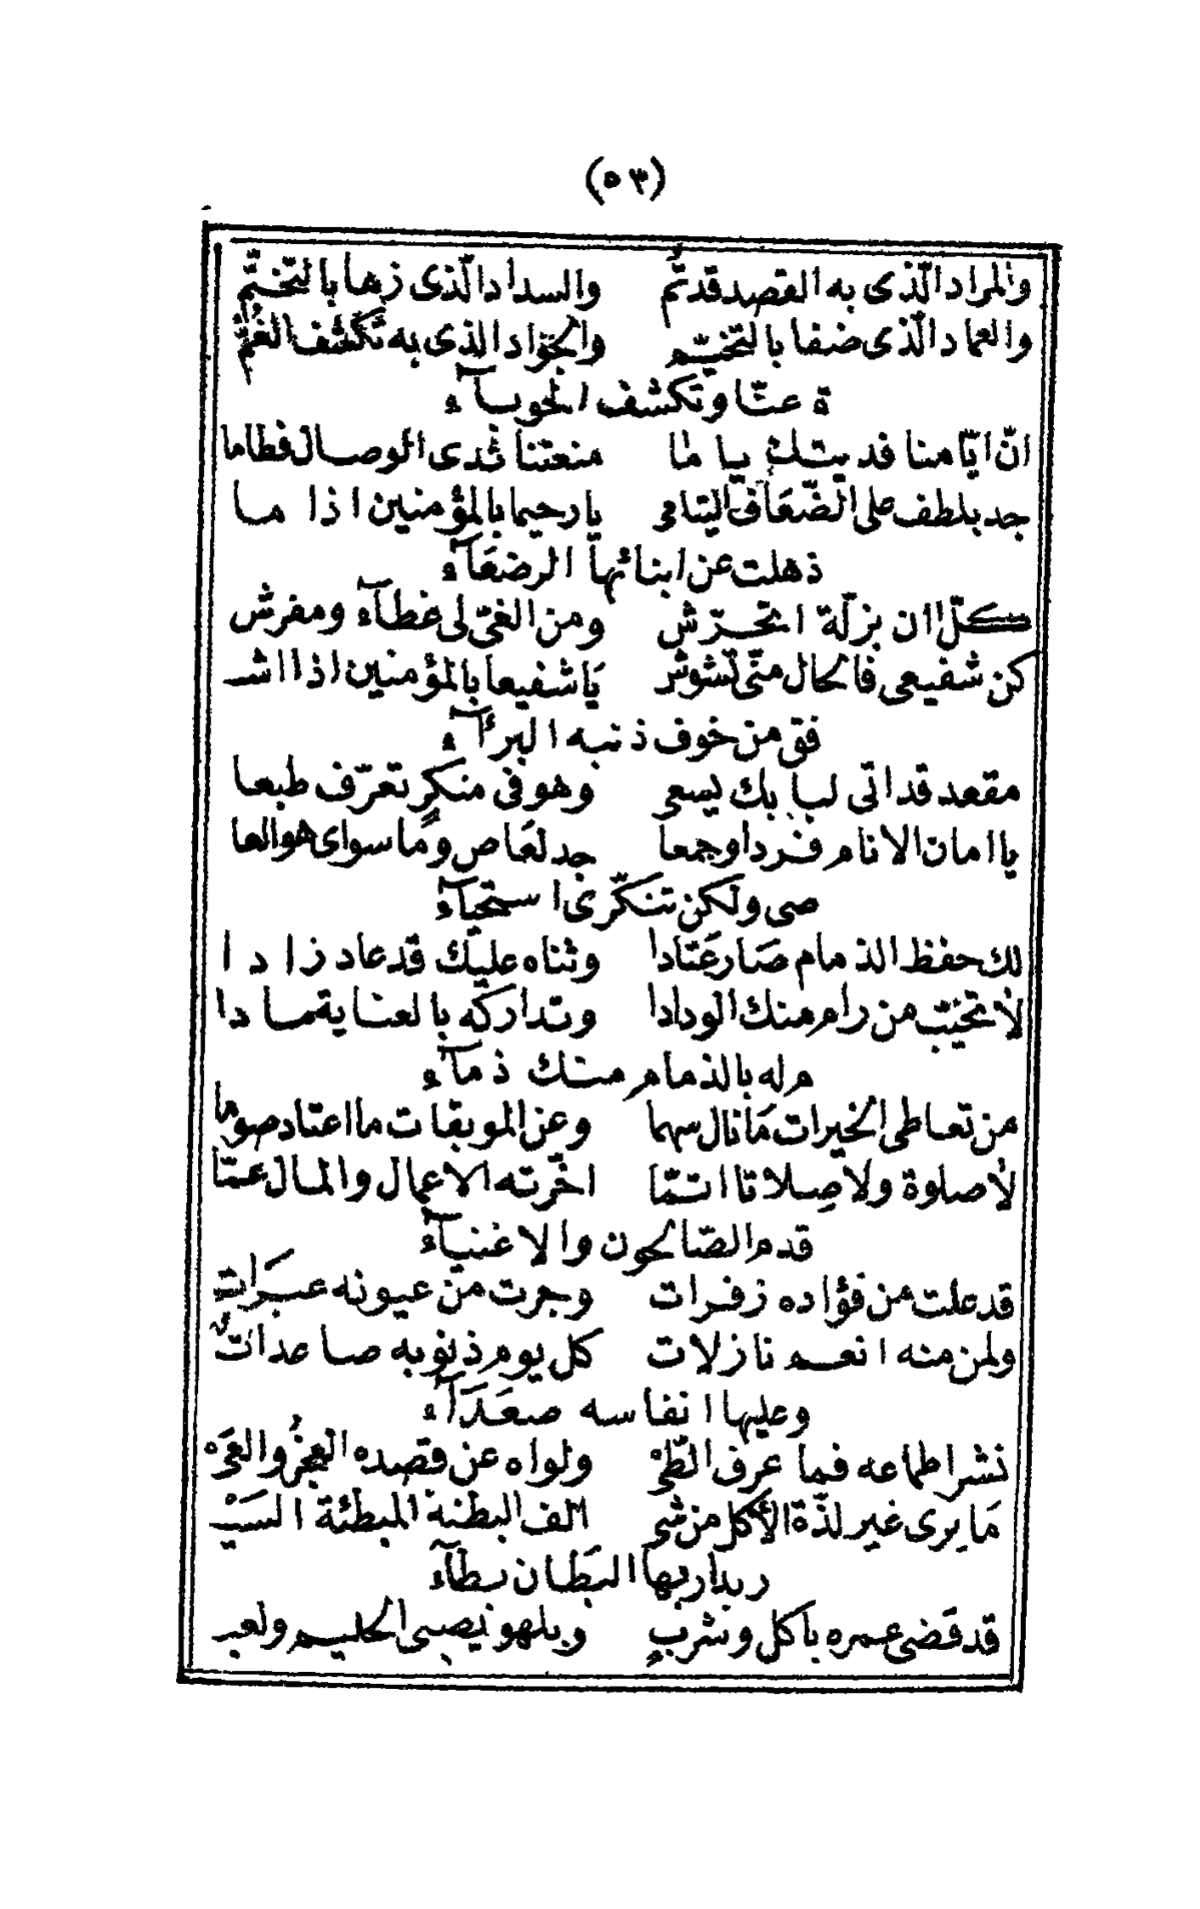 (٥٣)
والمراد الّذى به القصد قد تمّ والسداد الّذى زها بالتختّم
والعماد الّذى ضفا بالتخيّم والجواد الذى به تكشف الغمّ
ة عنّا وتكشف الحوبآء
انّ ايّامنا فديتك ياما منعتنا ثدى الوصال فطاما
جد بلطف على الضّعاف اليتامى يا رحيما بالمؤمنين اذا ما
ذهلت عن ابنائها الرضعآء
كلّ ان بزلّة اتحرّش ومن الغىّ لى غطآء ومفرش
كن شفيعى فالحال منّى تشوش يا شفيعا بالمؤمنين اذا اشـ
فق من خوف ذنبه البرآء
مقعد قد اتى لبابك يسعى وهو فى منكرٍ تعرّف طبعا
يا امان الانام فردا وجمعا جد لعاص وما سواى هو العا
صى ولكن تنكّرى استحيآء
لك حفظ الذمام صار عتادا وثناه عليك قد عاد زادا
لا تخيّب من رام منك الودادا وتداركه بالعناية مادا
م له بالذمام منك ذمآء
من تعاطى الخيرات ما نال سهما وعن الموبقات ما اعتاد صوما
لا صلوة ولا صلاتا اتمّا اخّرته الاعمال والمال عمّا
قدم الصّالحون والاغنيآء
قد علت من فؤاده زفرات وجرت من عيونه عبرات
ولمن منه انعم نازلات كل يوم ذنوبه صاعدات
وعليها انفاسه صعدآء
نشر اطماعه فما عرف الطّىْ ولواه عن قصده العجز والغىْ
ما يرى غير لذّة الأكل من شى الف البطنة المبطئة السيْـ
ر بدار بها البطان بطآء
قد قضى عمره باكل وشربٍ وبلهو يصبى الحليم ولعب